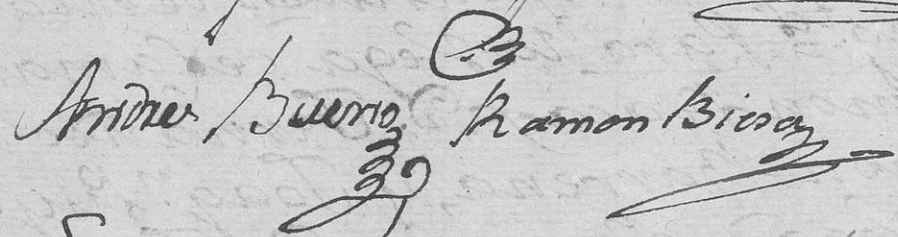 Andres Bueno Ramon Biesa